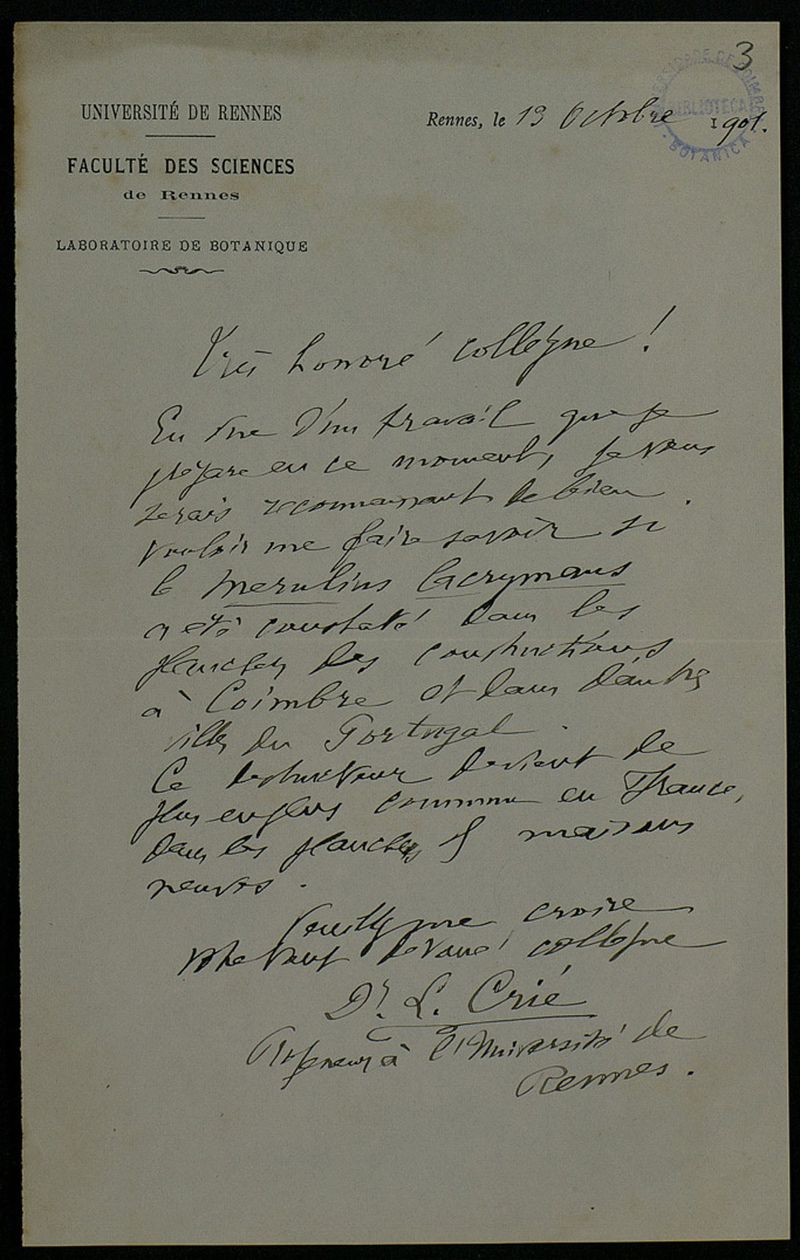 3
UNIVERSITÉ DE RENNES
FACULTÉ DES SCIENCES
de Rennes
LABORATOIRE DE BOTANIQUE
Rennes, le 13 Octobre 1901.
BIBLIOTECA
BOTANICA
Très honoré collègue !
En vue d'un travail que je
prépare en ce moment, je vous
serais reconnaissant de bien
vouloir me faire savoir si
le Merulius lacrymans
a été constaté dans les
planchers des constructions
à Coimbre et dans d'autres
villes du Portugal.
Ce destructeur devient de
plus en plus commun en France,
dans les planchers de maisons
neuves.
Veuillez me croire
votre tout dévoué collègue
Dr. L. Crié
Professeur à l'Université de
Rennes.